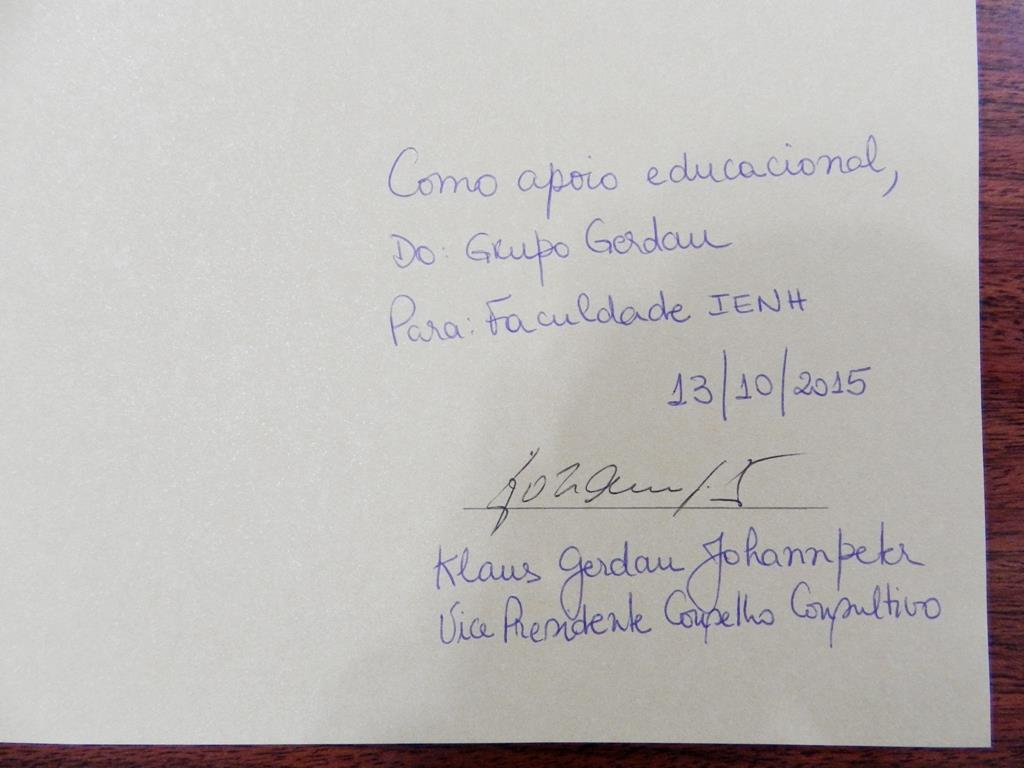 Como apoio educacional,
Do: Grupo Gerdau
Para: Faculdade IENH
13/10/2015
Klaus Gerdau Johannpeter
Vice Presidente Conselho Consultivo